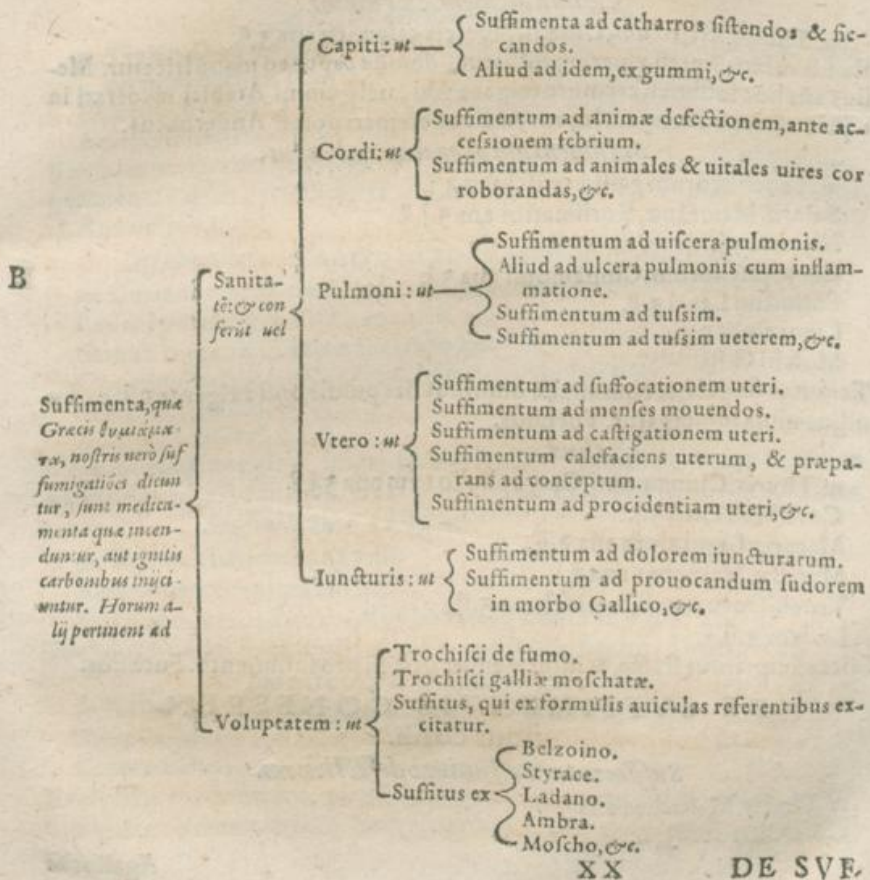 B
Suffimenta, quæ
Græcis θυμιάμα-
τα, nostris uerò suf
fumigatiões dicun
tur, sunt medica-
menta quæ incen-
duntur, aut ignitis
carbonibus inijci-
untur. Horum a-
lij pertinent ad
Sanita-
tẽ: & con
ferũt uel
Capiti: ut
Suffimenta ad catharros sistendos & sic-
candos.
Aliud ad idem, ex gummi, &c.
Cordi: ut
Suffimentum ad animæ defectionem, ante ac-
cessionem febrium.
Suffimentum ad animales & uitales uires cor
roborandas, &c.
Pulmoni: ut
Suffimentum ad uiscera pulmonis.
Aliud ad ulcera pulmonis cum inflam-
matione.
Suffimentum ad tussim.
Suffimentum ad tussim ueterem, &c.
Vtero: ut
Suffimentum ad suffocationem uteri.
Suffimentum ad menses mouendos.
Suffimentum ad castigationem uteri.
Suffimentum calefaciens uterum, & præpa-
rans ad conceptum.
Suffimentum ad procidentiam uteri, &c.
Iuncturis: ut
Suffimentum ad dolorem iuncturarum.
Suffimentum ad prouocandum sudorem
in morbo Gallico, &c.
Voluptatem: ut
Trochisci de fumo.
Trochisci galliæ moschatæ.
Suffitus, qui ex formulis auiculas referentibus ex-
citatur.
Suffitus ex
Belzoino.
Styrace.
Ladano.
Ambra.
Moscho, &c.
XX DE SVF-